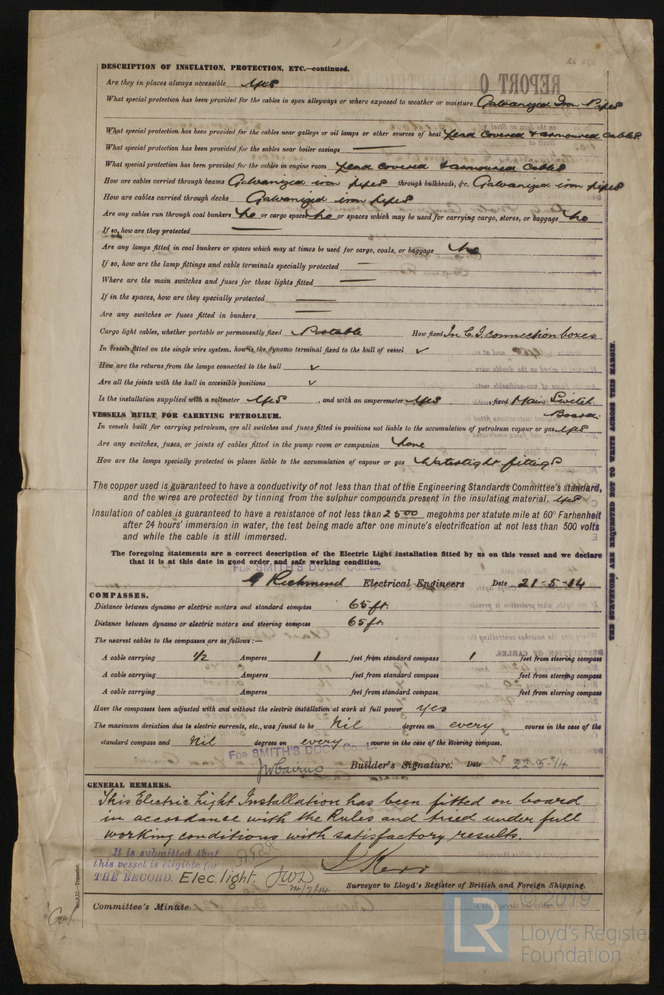 DESCRIPTION OF INSULATION, PROTECTION, ETC.—continued.
REPORT O
Are they in places always accessible yes
What special protection has been provided for the cables in open alleyways or where exposed to weather or moisture Galvanized Iron Pipes
What special protection has been provided for the cables near galleys or oil lamps or other sources of heat Lead Covered & armoured cables
What special protection has been provided for the cables near boiler casings —
What special protection has been provided for the cables in engine room Lead covered & armoured cables
How are cables carried through beams Galvanized iron pipes through bulkheads, &c. Galvanized iron pipes
How are cables carried through decks Galvanized iron pipes
Are any cables run through coal bunkers No or cargo spaces No or spaces which may be used for carrying cargo, stores, or baggage No
If so, how are they protected —
Are any lamps fitted in coal bunkers or spaces which may at times be used for cargo, coals, or baggage No
If so, how are the lamp fittings and cable terminals specially protected —
Where are the main switches and fuses for these lights fitted —
If in the spaces, how are they specially protected —
Are any switches or fuses fitted in bunkers —
Cargo light cables, whether portable or permanently fixed Portable How fixed In C.I. connection boxes
In vessels fitted on the single wire system, how is the dynamo terminal fixed to the hull of vessel ✓
How are the returns from the lamps connected to the hull ✓
Are all the joints with the hull in accessible positions ✓
Is the installation supplied with a voltmeter yes , and with an amperemeter yes fixed Main Switch Board.
VESSELS BUILT FOR CARRYING PETROLEUM.
In vessels built for carrying petroleum, are all switches and fuses fitted in positions not liable to the accumulation of petroleum vapour or gas yes
Are any switches, fuses, or joints of cables fitted in the pump room or companion None
How are the lamps specially protected in places liable to the accumulation of vapour or gas Watertight fittings
The copper used is guaranteed to have a conductivity of not less than that of the Engineering Standards Committee's standard,
and the wires are protected by tinning from the sulphur compounds present in the insulating material. yes
Insulation of cables is guaranteed to have a resistance of not less than 2500 megohms per statute mile at 60° Farhenheit
after 24 hours' immersion in water, the test being made after one minute's electrification at not less than 500 volts
and while the cable is still immersed.
The foregoing statements are a correct description of the Electric Light installation fitted by us on this vessel and we declare
that it is at this date in good order and safe working condition.
FOR SMITH'S DOCK CO. LD
G Richmond Electrical Engineers Date 21-5-14
COMPASSES.
Distance between dynamo or electric motors and standard compass 65 ft.
Distance between dynamo or electric motors and steering compass 65 ft.
The nearest cables to the compasses are as follows:—
A cable carrying 1/2 Amperes 1 feet from standard compass 1 feet from steering compass
A cable carrying Amperes feet from standard compass feet from steering compass
A cable carrying Amperes feet from standard compass feet from steering compass
Have the compasses been adjusted with and without the electric installation at work at full power Yes
The maximum deviation due to electric currents, etc., was found to be Nil degrees on every course in the case of the
standard compass and Nil degrees on every course in the case of the steering compass.
FOR SMITH'S DOCK CO. LD
JW Cairns Builder's Signature. Date 22-5-14
GENERAL REMARKS.
This Electric Light Installation has been fitted on board
in accordance with the Rules and tried under full
working conditions with satisfactory results.
It is submitted that
this vessel is eligible for
THE RECORD. Elec. light. JWD 24/7/14
J Kerr
Surveyor to Lloyd's Register of British and Foreign Shipping.
Committee's Minute
THE SURVEYORS ARE REQUESTED NOT TO WRITE ACROSS THIS MARGIN.
© 2019
LR
Lloyd's Register
Foundation